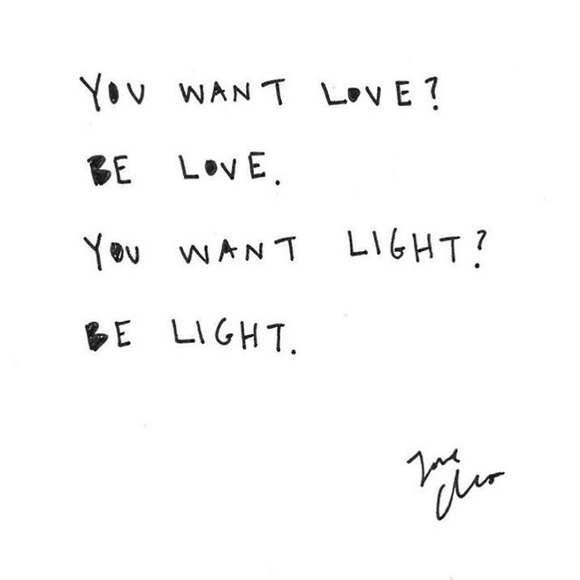 YOU WANT LOVE?
BE LOVE.
YOU WANT LIGHT?
BE LIGHT.
Love
Cleo